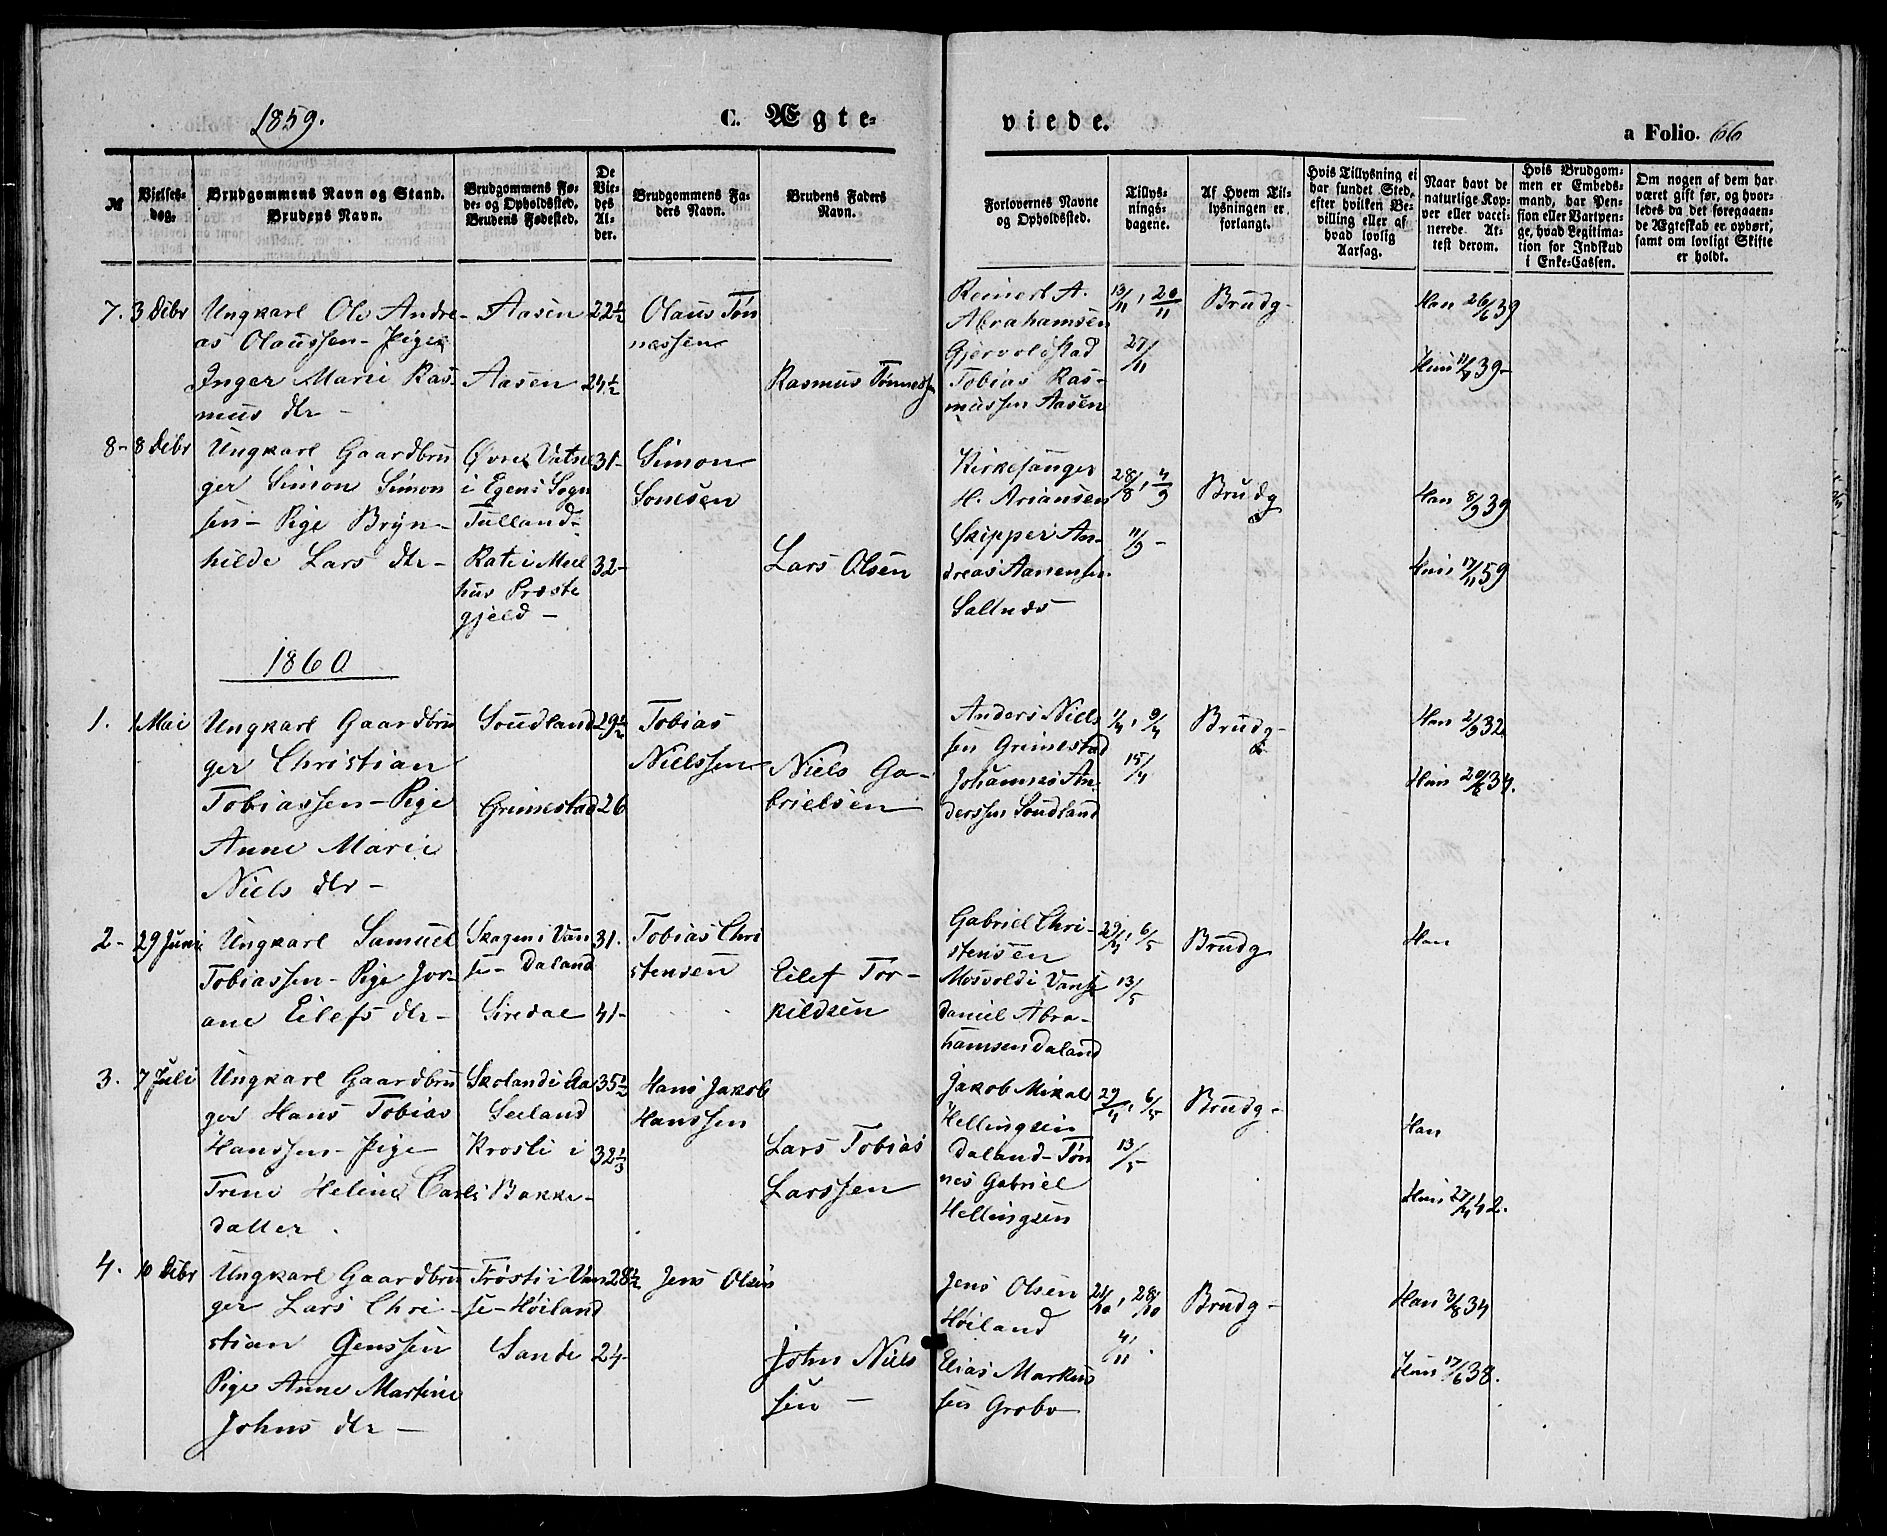 1859.
C. Ægte-
viede.
a Folio. 66
№
Vielses-
dag.
Brudgommens Navn og Stand.
Brudens Navn.
Brudgommens Fø-
de- og Opholdssted.
Brudens Fødested.
De
Vie-
des
Al-
der.
Brudgommens Fa-
ders Navn.
Brudens Faders
Navn.
Forlovernes Navne
og Opholdssted.
Tillys-
nings-
dagene.
Af Hvem Til-
lysningen er
forlangt.
Hvis Tillysning ei
har fundet Sted,
efter hvilken Be-
villing eller af
hvad lovlig
Aarsag.
Naar havt de
naturlige Kop-
per eller vacci-
nerede. At-
test derom.
Hvis Brudgom-
men er Embeds-
mand, har Pen-
sion eller Vartpen-
ge, hvad Legitima-
tion for Indskud
i Enke-Cassen.
Om nogen af dem har
været gift før, og hvor-
ledes da det foregaaen-
de Ægteskab er ophørt,
samt om lovligt Skifte
er holdt.
7. 3 Debr
Ungkarl Ole Andre-
as Olaussen - Pige
Inger Marie Ras-
mus dtr -
Aasen 22½
Aasen 24½
Olaus Tøn
nessen
Rasmus Tønnessen
Reinert A.
Abrahamsen
Gjervoldstad
Tobias Ras-
mussen Aasen
13/11, 20/11
27/11
Brudg-
Han 26/6 39
Hun 11/9 39-
8- 8 Debr
Ungkarl Gaardbru
ger Simon Simon
sen - Pige Bryn-
hilde Lars dtr -
Øvre Vatne
i Egens Sogn
Tulland-
Rate i Meel
hus Præste
gjeld -
31-
32-
Simon
Simesen
Lars Olsen
Kirkesanger
H. Ariansen
Skipper An-
dreas Aanensen
Saltnes
28/8, 4/9
11/9 -
Brudg
Han 8/9 39
Hun 17/11 59
1860
1. 1 Mai
Ungkarl Gaardbru
ger Christian
Tobiassen - Pige
Anne Marie
Niels dtr -
Soudland 29½
Grimestad 26
Tobias
Nielssen
Niels Ga-
brielsen
Anders Niels
sen Grimestad
Johannes An
derssen Soudland
1/4, 9/4
15/4
Brudg-
Han 2/9 32
Hun 20/6 34.
2- 29 Juni
Ungkarl Samuel
Tobiassen - Pige Jor-
ane Eilefs dtr -
Skagen i Van
se - Daland
Siredal
31.
41-
Tobias Chri
stensen
Eilef Tor-
kildsen
Gabriel Chri-
stensen
Mosvold i Vanse
Daniel Abra-
hamsen Daland
29/4, 6/5
13/5
Brudg
Han
3. 7 Juli
Ungkarl Gaardbru
ger Hans Tobias
Hanssen - Pige
Trene Heline Carls
datter.
Skolandi Aa
Seeland
Krosli i
Bakke-
35½
32⅓
Hans Jakob
Hanssen
Lars Tobias
Larssen
Jakob Mikal
Hellingsen
Daland - Tøn
nes Gabriel
Hellingsen
29/4, 6/5
13/5-
Brudg-
Han
Hun 27/4 42.
4. 10 Debr
Ungkarl Gaardbru
ger Lars Chri-
stian Jenssen
Pige Anne Martine
Johns dtr -
Frøsti i Van
se - Høiland
Sande
28½
24-
Jens Olsen
John Niels
sen -
Jens Olsen
Høiland
Elias Markus
sen Grobo
21/10, 28/10
4/11.
Brudg-
Han 3/8 34
Hun 17/6 38.